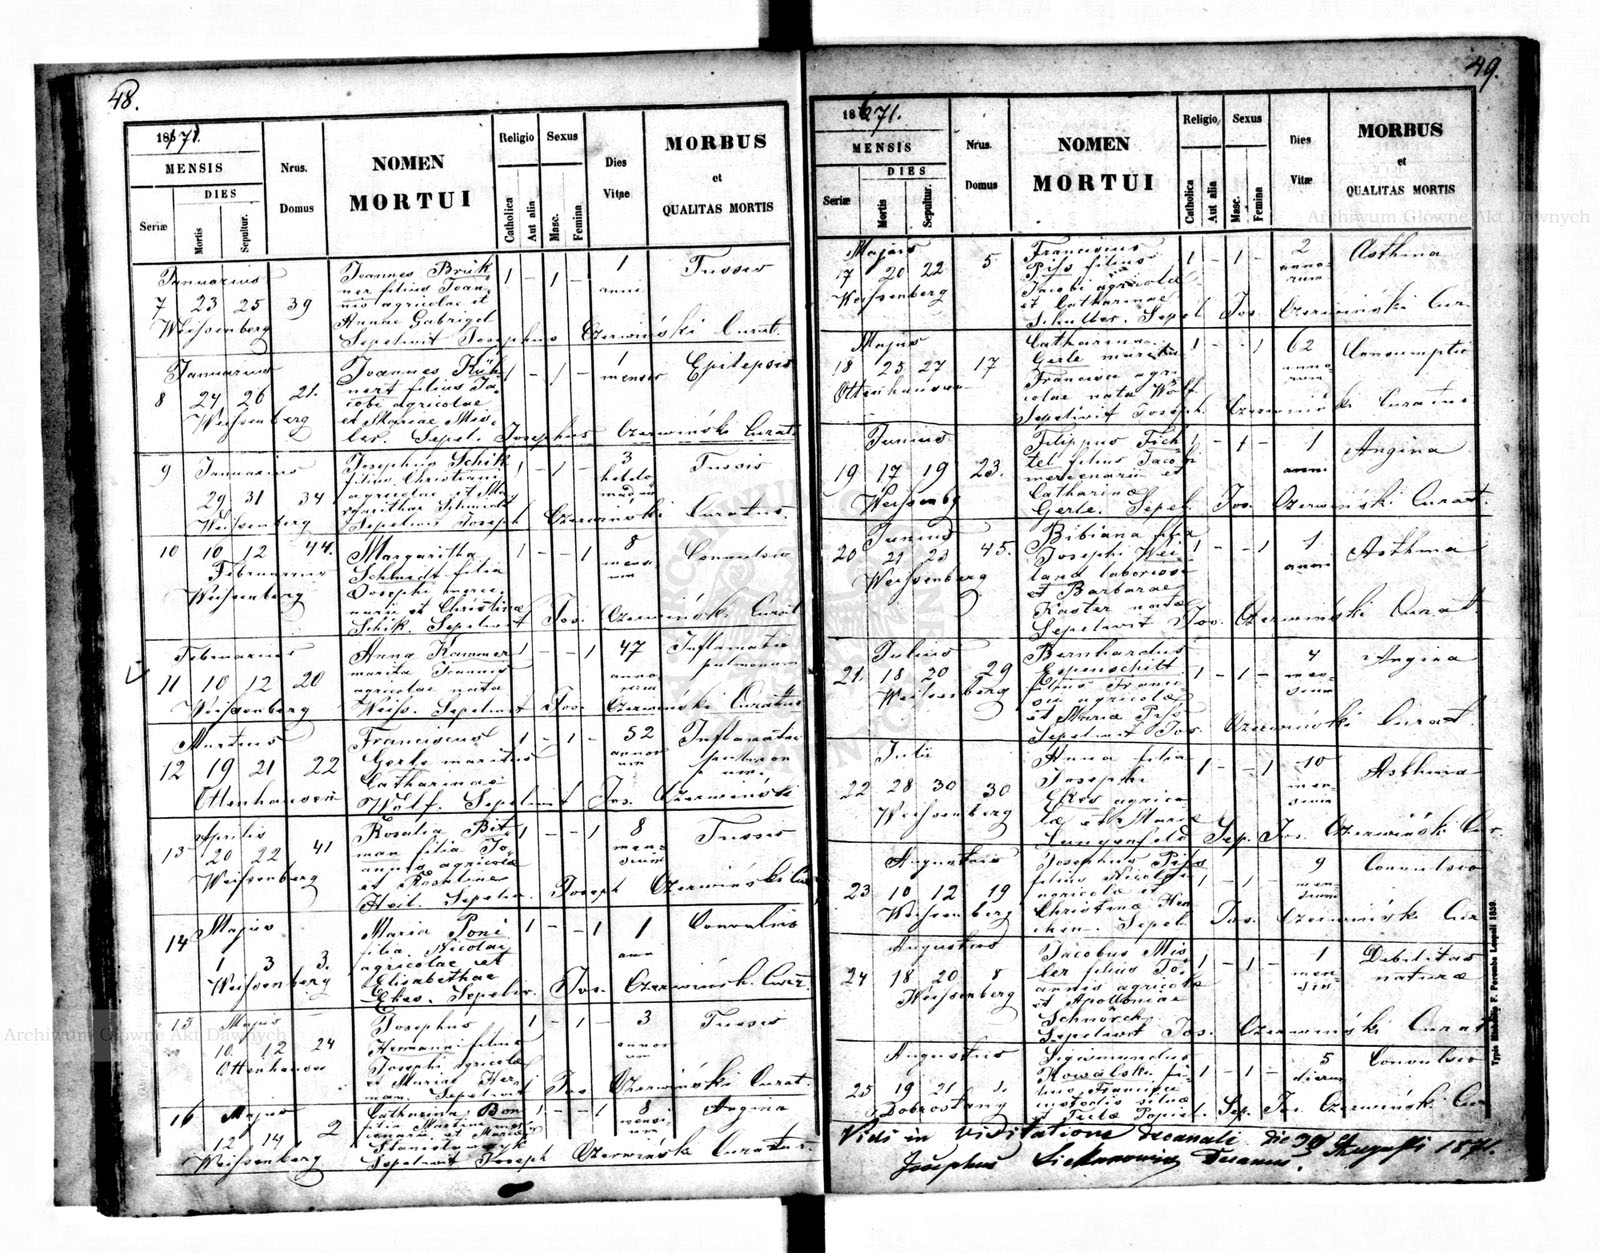 48.
1871.
MENSIS
DIES
Seriæ
Mortis
Sepultur.
Nrus.
Domus
NOMEN
MORTUI
Religio
Catholica
Aut alia
Sexus
Masc.
Femina
Dies
Vitae
MORBUS
et
QUALITAS MORTIS
Januarius
7 23 25 39
Weissenberg
Joannes Brük
ner filius Joan-
nis agricolae et
Annae Gabriel
Sepelivit Josephus Czerwiński Curat.
1 - 1 -
1
anni
Tussis
Januarius
8 24 26 21.
Weissenberg
Joannes Küh
nert filius Ja
cobi agricolae
et Mariae Mis-
ler. Sepel. Josephus Czerwiński Curat.
1 - 1 -
1
mensis
Epilepsis
9 Januarius
29 31 34
Weissenberg
Josephus Schik
filius Christiani
agricolae et Ma
rgarithae Schmidt
Sepelivit Joseph Czerwiński Curatus.
1 - 1 -
3
hebdo
madum
Tussis
10 10 12 44.
Februarius
Weissenberg
Margaritha
Schmidt filia
Josephi merce-
narii et Christinae
Schik. Sepelivit Jos. Czerwiński Curat
1 - - 1
8
mensi
um
Convulsio
Februarius
11 10 12 20
Weissenberg
Anna Kammer
marita Joannis
agricolae nata
Weiss. Sepelivit Jos. Czerwiński Curatus
1 - - 1
47
anno
rum
Inflamatio
pulmonum
Martius
12 19 21 22
Ottenhausen
Franciscus
Gerle maritus
Catharinae
Wolf. Sepelivit Jos. Czerwiński
1 - 1 -
52
annor
um
Inflamatio
pulmon
um
Aprilis
13 20 22 41
Weissenberg
Rosalia Bit
man filia Jo
annis agricolae
et Rosalinae
Heil. Sepeliv. Joseph Czerwiński Cur
1 - - 1
8
men-
sium
Tussis
14 Majus
1 3 3.
Weissenberg
Maria Poni
filia Nicolai
agricolae et
Elisabethae
Ekes. Sepeliv. Jos. Czerwiński Curr.
1 - - 1
1
ann
Convulsio
15 Majus
10 12 24
Ottenhausen
Josephus
Hermann filius
Josephi agricolae
et Mariae Her
man. Sepelivit Jos Czerwiński Curat.
1 - 1 -
3
annor
um
Tussis
16 Majus
12 14 2
Weissenberg
Catharina Bon
filia Martini mer
cenarii et Mariae
Stanislawski
Sepelivit Joseph Czerwiński Curatus
1 - - 1
8
mensi-
um
Angina
49.
1871.
MENSIS
DIES
Seriæ
Mortis
Sepultur.
Nrus.
Domus
NOMEN
MORTUI
Religio
Catholica
Aut alia
Sexus
Masc.
Femina
Dies
Vitæ
MORBUS
et
QUALITAS MORTIS
Majus
17 20 22 5
Weissenberg
Franciscus
Piss filius
Jacobi agricolae
et Catharinae
Schuller. Sepel Jos. Czerwiński Cur.
1 - 1 -
2
anno-
rum
Asthma
Majus
18 25 27 17
Ottenhausen
Catharina
Gerle marita
Francisci agri
colae nata Wolf.
Sepelivit Joseph. Czerwiński Curatus
1 - - 1
62
anno
rum
Consumptio
Junius
19 17 19 23.
Weissenbg
Filippus Fich
tel filius Jacobi
mercenarii et
Catharinae
Gerle. Sepel. Jos. Czerwiński Curat.
1 - 1 -
1
anni
Angina
Junius
20 21 23 45.
Weissenberg
Bibiana filia
Josephi Wei
land laboriosi
et Barbarae
Kaster nata
Sepelivit Jos. Czerwiński Curat.
1 - - 1
1
anni
Asthma
Julius
21. 18 20 29
Weissenberg
Bernhardus
Espenschitt
filius Franci-
sci agricolae
et Mariae Piss
Sepelivit Jos. Czerwiński Curat.
1 - 1 -
4
men-
sium
Angina
Julii
22 28 30 30
Weissenberg
Anna filia
Josephi
Ekes agrico
lae et Mariae
Lungenfeld Sep. Jos. Czerwiński Cur.
1 - - 1
10
men-
sium
Asthma
Augustus
23 10 12 19
Weissenberg
Josephus Piss
filius Nicolai
agricolae et
Christinae Hen
chen. Sepel. Jos. Czerwiński Cur
1 - 1 -
9
men-
sium
Convulsio
Augustus
24 18 20 8
Weissenberg
Jacobus Mis
ler filius Jo-
annis agricolae
et Apolloniae
Schnörch
Sepelivit Jos. Czerwiński Curat
1 - 1 -
1
men-
sis
Debilitas
naturae
Augustus
25 19 21 1.
Dobrostany
Sigismundus
Kowalski fi-
lius Francisci
custodis silvae
et Teclae Popiel. Sep. Jos. Czerwiński Cur
1 - 1 -
5
dierum
Convulsio
Vidi in visitatione decanali die 30 Augusti 1871.
Josephus Decanus
Typis Hæred. F. Poremba Leopoli 1859.
Archiwum Główne Akt Dawnych
Archiwum Główne Akt Dawnych